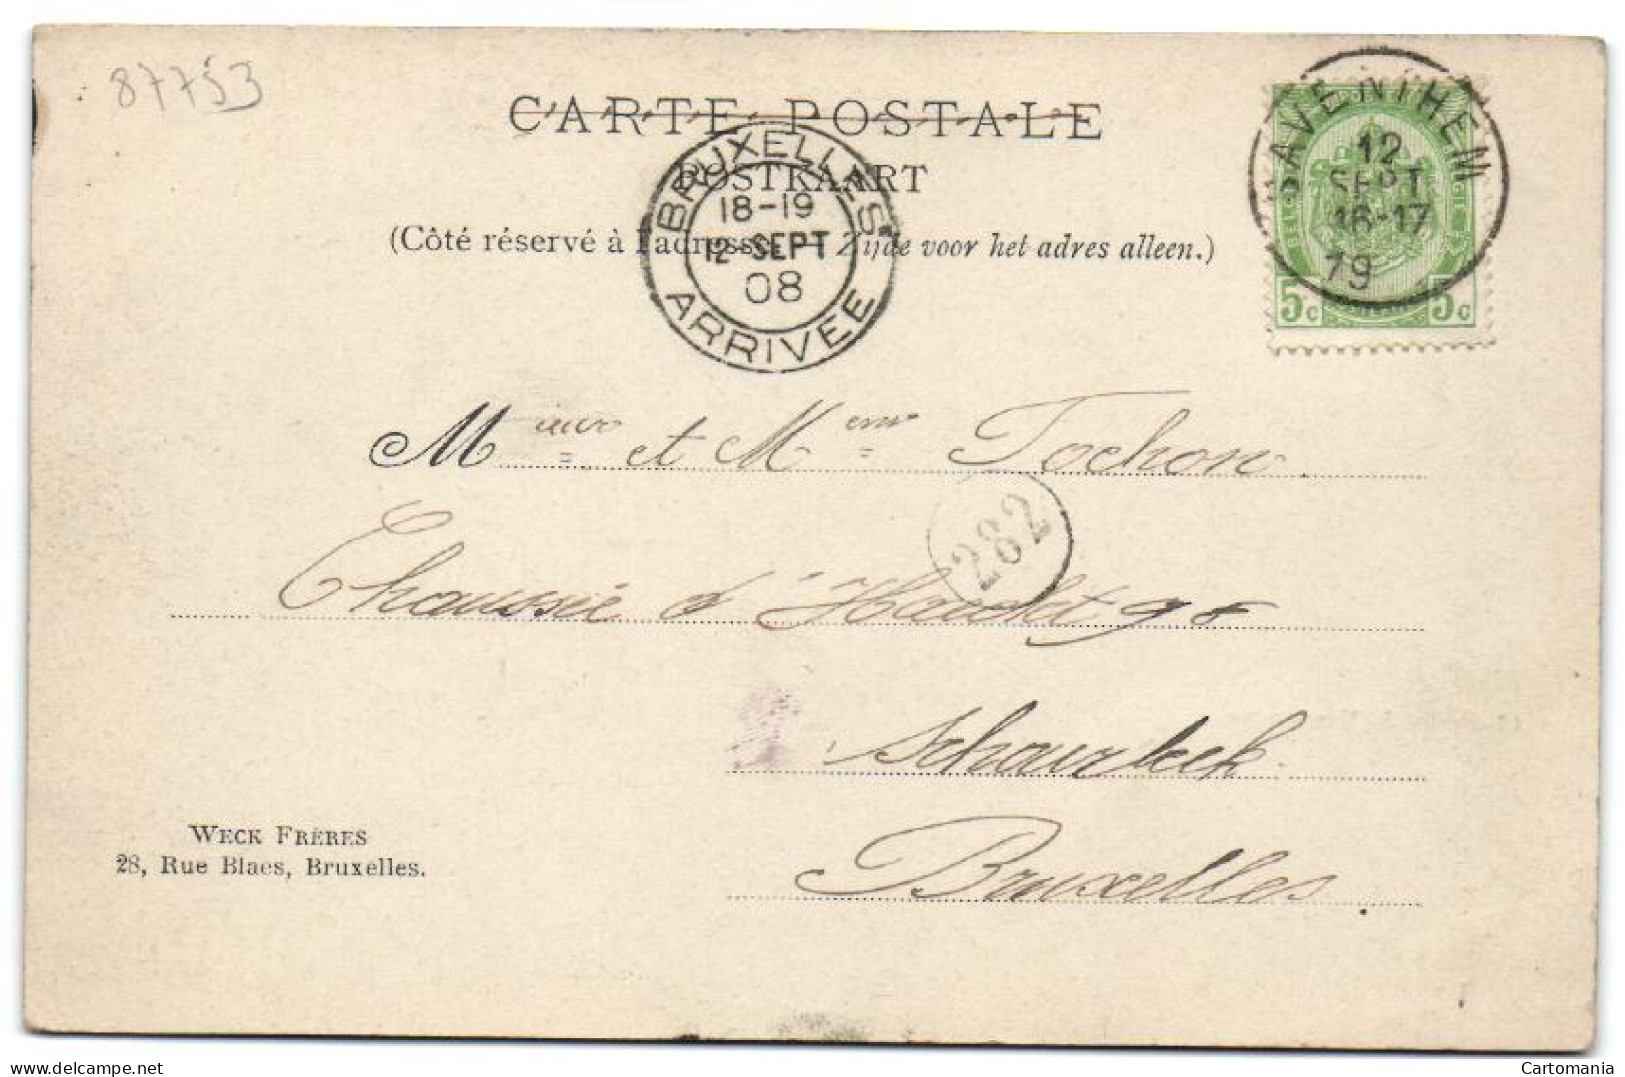 87753
CARTE POSTALE
POSTKAART
(Côté réservé à l'adresse — Zijde voor het adres alleen.)
BRUXELLES
18-19
12 SEPT
08
ARRIVEE
SAVENTHEM
12
SEPT
16-17
19
5c 5c
Mr et Mme Tochon
282
Chaussée d'Haecht 98
Schaerbeek
Bruxelles
WECK FRÈRES
28, Rue Blaes, Bruxelles.
Cartomania